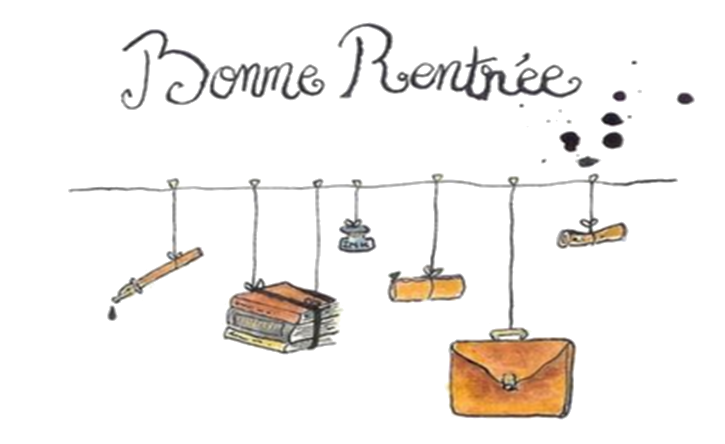 Bonne Rentrée